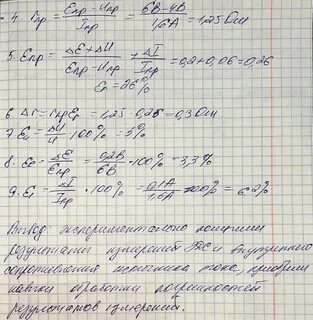 4. r пр = Eпр - Uпр / Iпр = 6В - 4В / 1,6А = 1,25 Ом
5. Eпр = ΔE + ΔU / Eпр - Uпр + ΔI / Iпр = 0,2 + 0,06 = 0,26
Er = 26%
6. Δr = rпр Er = 1,25 · 0,26 = 0,3 Ом
7. Eu = ΔU / U · 100% = 5%
8. Eε = ΔE / Eпр = 0,2В / 6В · 100% = 3,3%
9. Ei = ΔI / Iпр · 100% = 0,1А / 1,6А · 100% = 6,2%
Вывод экспериментально получили
результаты измерений ЭДС и внутреннего
сопротивления источника тока, приобрели
навыки обработки погрешностей
результатов измерений.